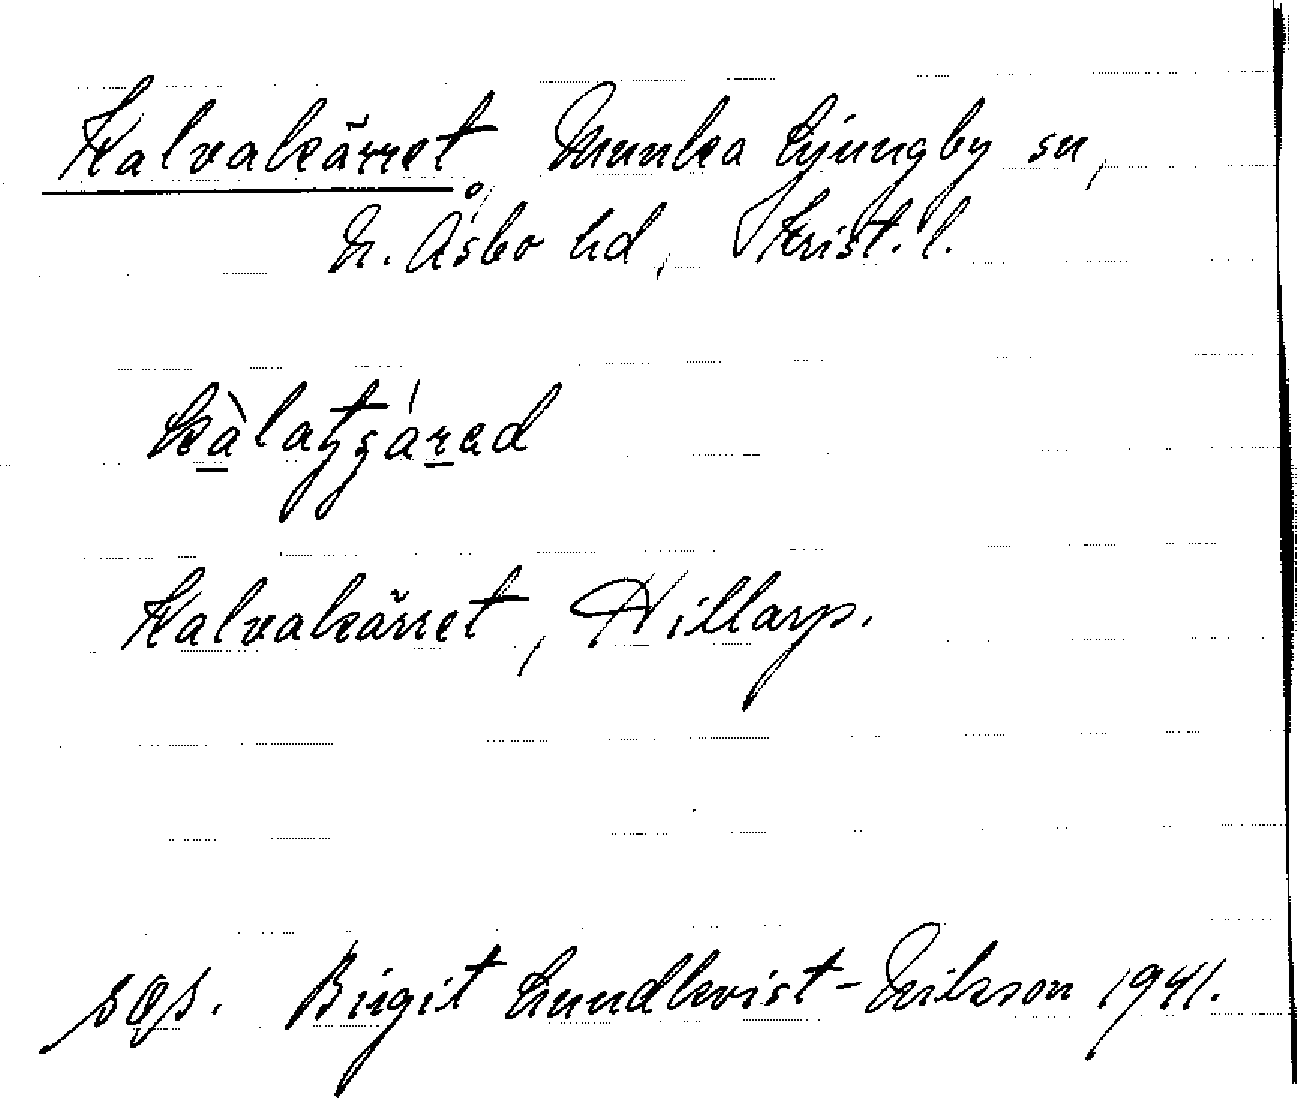 Kalvakärret Munka Ljungby sn,
N. Åsbo hd, Krist. l.
Kalvakärret, Hillarp.
sgs. Birgit Lundkvist-Nilsson 1941.